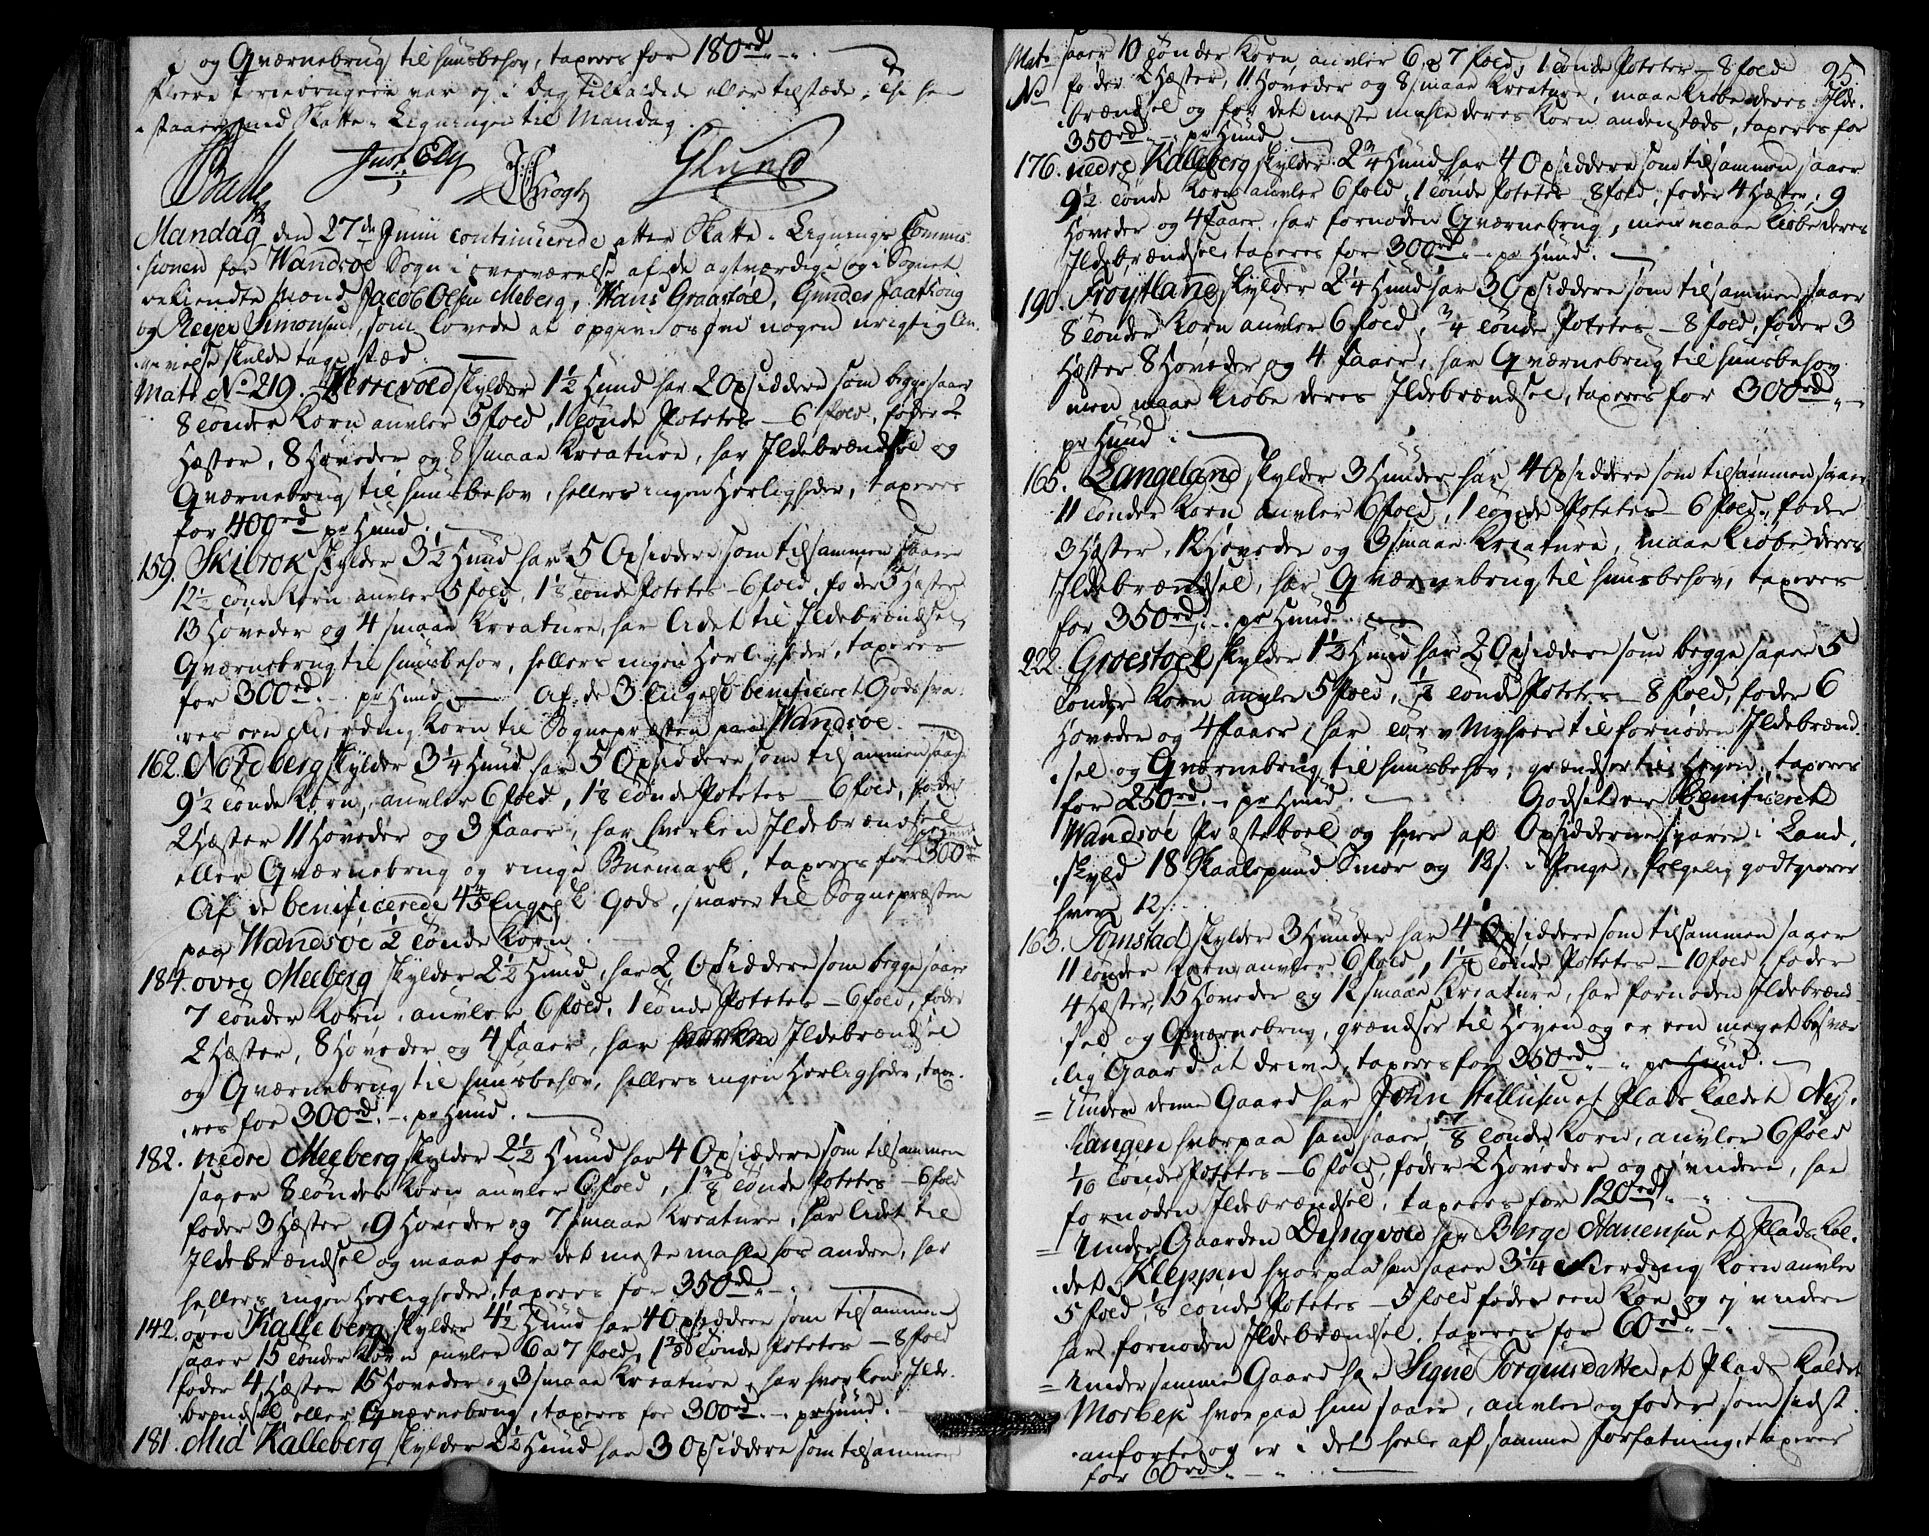 og Qværnebrug til huusbehov, taxeres for 180rd
Fleere Feriebrugere var ej i Dag tilkaldede eller tilstæde, Thi hen
staaer med Skatte-Ligningen til Mandag.
Balle Just Ely J: C: Krogh G Lund
Mandag den 27de Junii continuerede atter Skatte-Lignings Commis-
sionen for Wandsøe Sogn i overværelse af de agtværdige og i Sognet
bekiendte Mænd Jacob Olsen Meberg, Hans Graastøl, Gunder Jaathoug
og Reijer Simonsen, som lovede at opgive os hvor nogen urigtig An-
givelse skulde tage stæd.
Mats No 219. Herrevold skylder 1½ Hund har 2 Opsiddere som begge saaer
8 tønder Korn auvler 5 fold, 1 tønde Potetes - 6 fold, føder 2
Hæster, 8 Høveder og 8 smaae Kreature, har Ildebrændsel og
Qværnebrug til huusbehov, hellers ingen Herligheder, taxeres
for 400rd pr Hund.
159. Skibrok skylder 3½ Hund har 5 Opsiddere som tilsammen saaer
12½ tønde Korn auvler 5 fold, 1⅛ tønde Potetes - 6 fold, føder 5 Hæster
13 Høveder og 4 smaae Kreature, har lidet til Ildebrændsel,
Qværnebrug til huusbehov, hellers ingen Herligheder, taxeres
for 300rd pr Hund. Af de 3 Engelsk benificeret Gods sva-
res een Fierding Korn til Sognepræsten paa Wandsøe.
162. Nordberg skylder 3¼ Hund har 5 Opsiddere som tilsammen saaer
9½ tønde Korn, auvler 6 fold, 1⅛ tønde Potetes - 6 fold, føder
2 Hæster 11 Høveder og 3 Faaer, har hverken Ildebrændsel
eller Qværnebrug og ringe Buemark, taxeres for 300rd pr Hund
Af de benificerede 4⅘ Engelsk Gods, svares til Sognepræsten
paa Wandsøe ½ tønde Korn.
184. øvre Meeberg skylder 2½ Hund, har 2 Opsiddere som begge saaer
7 tønder Korn, auvler 6 fold, 1 tønde Potetes - 6 fold, føder
2 Hæster, 8 Høveder og 4 Faaer, har Ildebrændsel
og Qværnebrug til huusbehov, hellers ingen Herligheder, taxe-
res for 300rd pr Hund.
182. nedre Meeberg skylder 2½ Hund har 4 Opsiddere som tilsammen
saaer 8 tønder Korn auvler 6 fold, 1⅜ tønde Potetes - 6 fold
føder 3 Hæster, 9 Høveder og 7 smaae Kreature, har lidet til
Ildebrændsel og maae for det meste mahle hos andre, har
hellers ingen Herligheder, taxeres for 350rd
142. øvre Kalleberg skylder 4½ Hund har 4 Opsiddere som tilsammen
saaer 15 tønder Korn auvler 6 a 7 fold, 1⅜ tønde Potetes - 8 fold
føder 4 Hæster 15 Høveder og 3 smaae Kreature, har hverken Ilde-
brændsel eller Qværnebrug, taxeres for 300rd pr Hund.
181. Mid Kalleberg skylder 2½ Hund har 3 Opsiddere som tilsammen
25.
Mats No
saaer 10 tønder Korn, auvler 6 a 7 fold, 1 tønde Potetes - 8 fold
føder 2 Hæster, 11 Høveder og 8 smaae Kreature, maae kiøbe deres Ilde-
brændsel og for det meste mahle deres Korn andenstæds, taxeres for
350rd pr Hund.
176. nedre Kalleberg skylder 2¾ Hund har 4 Opsiddere som tilsammen saaer
9½ tønde Korn auvler 6 fold, 1 tønde Potetes 8 fold, føder 4 Hæster, 9
Høveder og 4 Faaer, har fornøden Qværnebrug, men maae kiøbe deres
Ildebrændsel, taxeres for 300rd pr Hund.
190. Frøytland skylder 2¼ Hund har 3 Opsiddere som tilsammen saaer
8 tønder Korn auvler 6 fold, ¾ tønde Potetes - 8 fold, føder 3
Hæster 8 Høveder og 4 Faaer, har Qværnebrug til huusbehov
men maae kiøbe deres Ildebrændsel, taxeres for 300rd
pr Hund.
165. Langeland skylder 3 Hunder har 4 Opsiddere som tilsammen saaer
11 tønder Korn auvler 6 fold, 1 tønde Potetes - 6 fold, føder
3 Hæster, 12 Høveder og 3 smaae Kreature, maae kiøbe deres
Ildebrændsel, har Qværnebrug til huusbehov, taxeres
for 350rd pr Hund.
222. Groestoel skylder 1½ Hund har 2 Opsiddere som begge saaer 5
tønder Korn auvler 5 fold, ½ tønde Potetes - 8 fold, føder 6
Høveder og 4 Faaer, har tørv Myhrer til fornøden Ildebrænd-
sel og Qværnebrug til huusbehov, grændser til Heyen, taxeres
for 250rd pr Hund. Godset er Benificeret
Wandsøe Præsteboel og hver af Opsidderne svarer i Land-
skyld 18 Skaalspund Smør og 12s. i Penge, følgelig godtgiører
hver 12s.
163. Tomstad skylder 3 Hunder har 4 Opsiddere som tilsammen saaer
11 tønder Korn auvler 6 fold, 1¼ tønde Potetes - 10 fold, føder
4 Hæster, 15 Høveder og 12 smaae Kreature, har fornøden Ildebrænd-
sel og Qværnebrug, grændser til Heyen og er een meget besvær-
lig Gaard at drive, taxeres for 350rd pr Hund.
= Under denne Gaard har John Hellusen et Plads kaldet Ny-
hangen hvorpaa han saaer ⅞ tønde Korn, auvler 6 fold
1/16 tønde Potetes - 6 fold, føder 2 Høveder og ej videre, har
fornøden Ildebrændsel, taxeres for 120rd
= Under Gaarden Dyngvold har Berge Hanensen et Plads kal-
det Kleppen hvorpaa han saaer 3¼ Fierding Korn auvler
5 fold, ⅛ tønde Potetes - 5 fold føder een Koe og ej videre
har fornøden Ildebrændsel, taxeres for 60rd
= Under samme Gaard har Signe Torgiusdatter et Plads kaldet
Morbek hvorpaa hun saaer, auvler og føder som sidst-
anførte og er i det heele af samme Forfatning, taxeres
for 60rd